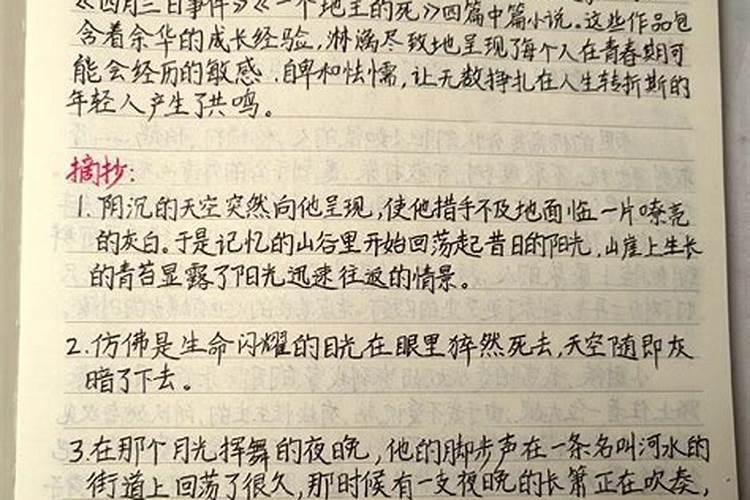 《四月三日事件》《一个地主的死》四篇中篇小说。这些作品包
含着余华的成长经验,淋漓尽致地呈现了每个人在青春期可
能会经历的敏感、自卑和怯懦,让无数挣扎在人生转折期的
年轻人产生了共鸣。
摘抄:
1. 阴沉的天空突然向他呈现,使他措手不及地面临一片嘹亮
的灰白。于是记忆的山谷里开始回荡起昔日的阳光,山崖上生长
的青苔显露了阳光迅速往返的情景。
2. 仿佛是生命闪耀的目光在眼里猝然死去,天空随即灰
暗了下去。
3. 在那个月光挥舞的夜晚,他的脚步声在一条名叫河水的
街道上回荡了很久,那时候有一支夜晚的长箫正在吹奏,